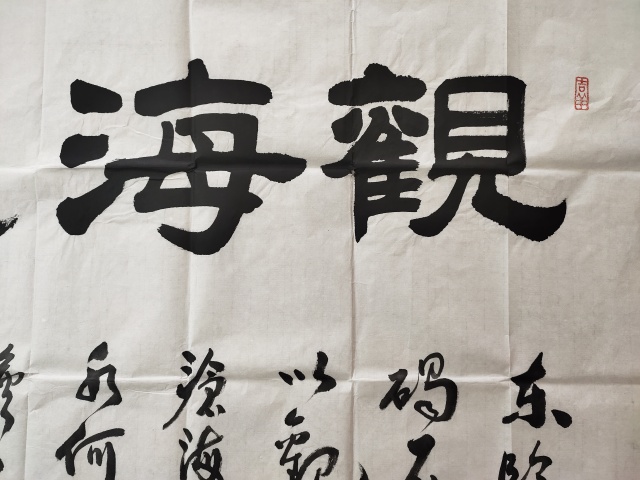 觀海
东临
碣石
以觀
滄海
水何